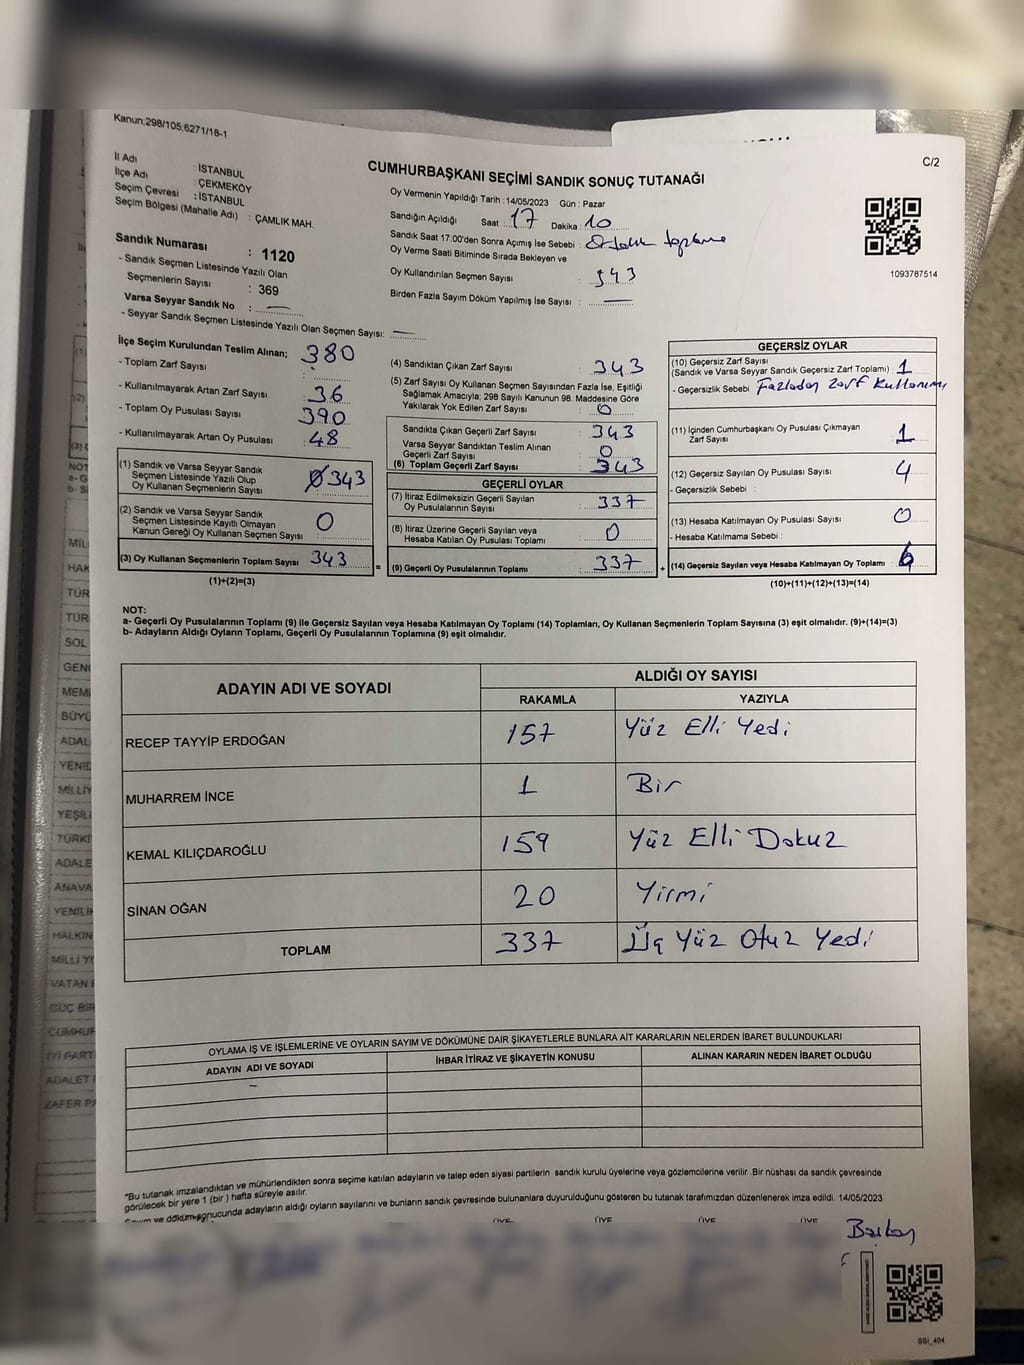 Kanun;298/105;6271/18-1
C/2
İl Adı : İSTANBUL
İlçe Adı : ÇEKMEKÖY
Seçim Çevresi : İSTANBUL
Seçim Bölgesi (Mahalle Adı) : ÇAMLIK MAH.
CUMHURBAŞKANI SEÇİMİ SANDIK SONUÇ TUTANAĞI
Oy Vermenin Yapıldığı Tarih :14/05/2023 Gün : Pazar
Sandığın Açıldığı Saat : 17 Dakika : 10
Sandık Saat 17:00'den Sonra Açımış İse Sebebi :
Oy Verme Saati Bitiminde Sırada Bekleyen ve
Oy Kullandırılan Seçmen Sayısı : 343
Birden Fazla Sayım Döküm Yapılmış İse Sayısı : —
1093787514
Sandık Numarası : 1120
- Sandık Seçmen Listesinde Yazılı Olan
Seçmenlerin Sayısı : 369
Varsa Seyyar Sandık No : —
- Seyyar Sandık Seçmen Listesinde Yazılı Olan Seçmen Sayısı: —
İlçe Seçim Kurulundan Teslim Alınan;
- Toplam Zarf Sayısı : 380
- Kullanılmayarak Artan Zarf Sayısı : 36
- Toplam Oy Pusulası Sayısı : 390
- Kullanılmayarak Artan Oy Pusulası : 48
(1) Sandık ve Varsa Seyyar Sandık
Seçmen Listesinde Yazılı Olup
Oy Kullanan Seçmenlerin Sayısı : 343
(2) Sandık ve Varsa Seyyar Sandık
Seçmen Listesinde Kayıtlı Olmayan
Kanun Gereği Oy Kullanan Seçmen Sayısı : 0
(3) Oy Kullanan Seçmenlerin Toplam Sayısı : 343
(1)+(2)=(3)
=
(4) Sandıktan Çıkan Zarf Sayısı : 343
(5) Zarf Sayısı Oy Kullanan Seçmen Sayısından Fazla İse, Eşitliği
Sağlamak Amacıyla; 298 Sayılı Kanunun 98. Maddesine Göre
Yakılarak Yok Edilen Zarf Sayısı : 0
Sandıkta Çıkan Geçerli Zarf Sayısı : 343
Varsa Seyyar Sandıktan Teslim Alınan
Geçerli Zarf Sayısı : 0
(6) Toplam Geçerli Zarf Sayısı : 343
GEÇERLİ OYLAR
(7) İtiraz Edilmeksizin Geçerli Sayılan
Oy Pusulalarının Sayısı : 337
(8) İtiraz Üzerine Geçerli Sayılan veya
Hesaba Katılan Oy Pusulası Toplamı : 0
(9) Geçerli Oy Pusulalarının Toplamı : 337
+
GEÇERSİZ OYLAR
(10) Geçersiz Zarf Sayısı
(Sandık ve Varsa Seyyar Sandık Geçersiz Zarf Toplamı) : 1
- Geçersizlik Sebebi : Fazladan zarf kullanımı
(11) İçinden Cumhurbaşkanı Oy Pusulası Çıkmayan
Zarf Sayısı : 1
(12) Geçersiz Sayılan Oy Pusulası Sayısı : 4
- Geçersizlik Sebebi :
(13) Hesaba Katılmayan Oy Pusulası Sayısı : 0
- Hesaba Katılmama Sebebi :
(14) Geçersiz Sayılan veya Hesaba Katılmayan Oy Toplamı : 6
(10)+(11)+(12)+(13)=(14)
NOT:
a- Geçerli Oy Pusulalarının Toplamı (9) ile Geçersiz Sayılan veya Hesaba Katılmayan Oy Toplamı (14) Toplamları, Oy Kullanan Seçmenlerin Toplam Sayısına (3) eşit olmalıdır. (9)+(14)=(3)
b- Adayların Aldığı Oyların Toplamı, Geçerli Oy Pusulalarının Toplamına (9) eşit olmalıdır.
ADAYIN ADI VE SOYADI
ALDIĞI OY SAYISI
RAKAMLA YAZIYLA
RECEP TAYYİP ERDOĞAN 157 Yüz Elli Yedi
MUHARREM İNCE 1 Bir
KEMAL KILIÇDAROĞLU 159 Yüz Elli Dokuz
SİNAN OĞAN 20 Yirmi
TOPLAM 337 Üç Yüz Otuz Yedi
OYLAMA İŞ VE İŞLEMLERİNE VE OYLARIN SAYIM VE DÖKÜMÜNE DAİR ŞİKAYETLERLE BUNLARA AİT KARARLARIN NELERDEN İBARET BULUNDUKLARI
ADAYIN ADI VE SOYADI İHBAR İTİRAZ VE ŞİKAYETİN KONUSU ALINAN KARARIN NEDEN İBARET OLDUĞU
"Bu tutanak imzalandıktan ve mühürlendikten sonra seçime katılan adayların ve talep eden siyasi partilerin sandık kurulu üyelerine veya gözlemcilerine verilir .Bir nüshası da sandık çevresinde
görülecek bir yere 1 (bir ) hafta süreyle asılır.
Sayım ve döküm sonucunda adayların aldığı oyların sayılarını ve bunların sandık çevresinde bulunanlara duyurulduğunu gösteren bu tutanak tarafımızdan düzenlenerek imza edildi. 14/05/2023
ÜYE ÜYE ÜYE ÜYE
SSI_404